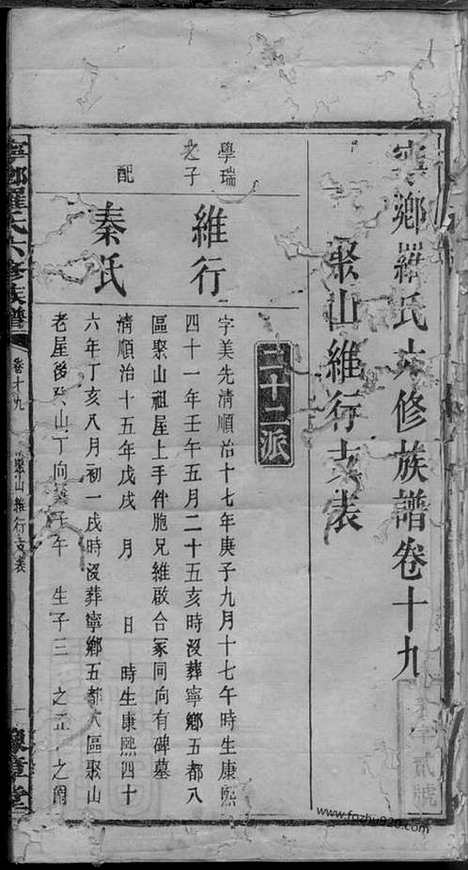 寧鄉羅氏六修族譜卷十九
聚山維行支表
三十二派
學瑞之子
維行
字美先清順治十七年庚子九月十七午時生康熙
四十一年壬午五月二十五亥時沒葬寧鄉五都八
區聚山祖屋上手伴胞兄維啟合冢同向有碑墓
配
秦氏
清順治十五年戊戌 月 日 時生康熙四十
六年丁亥八月初一戌時沒葬寧鄉五都八區聚山
老屋後癸山丁向 子午 生子三 之 之
寧鄉羅氏六修族譜
卷十九
聚山維行支表
一
豫章堂
字貳號
www.fozhu920.com